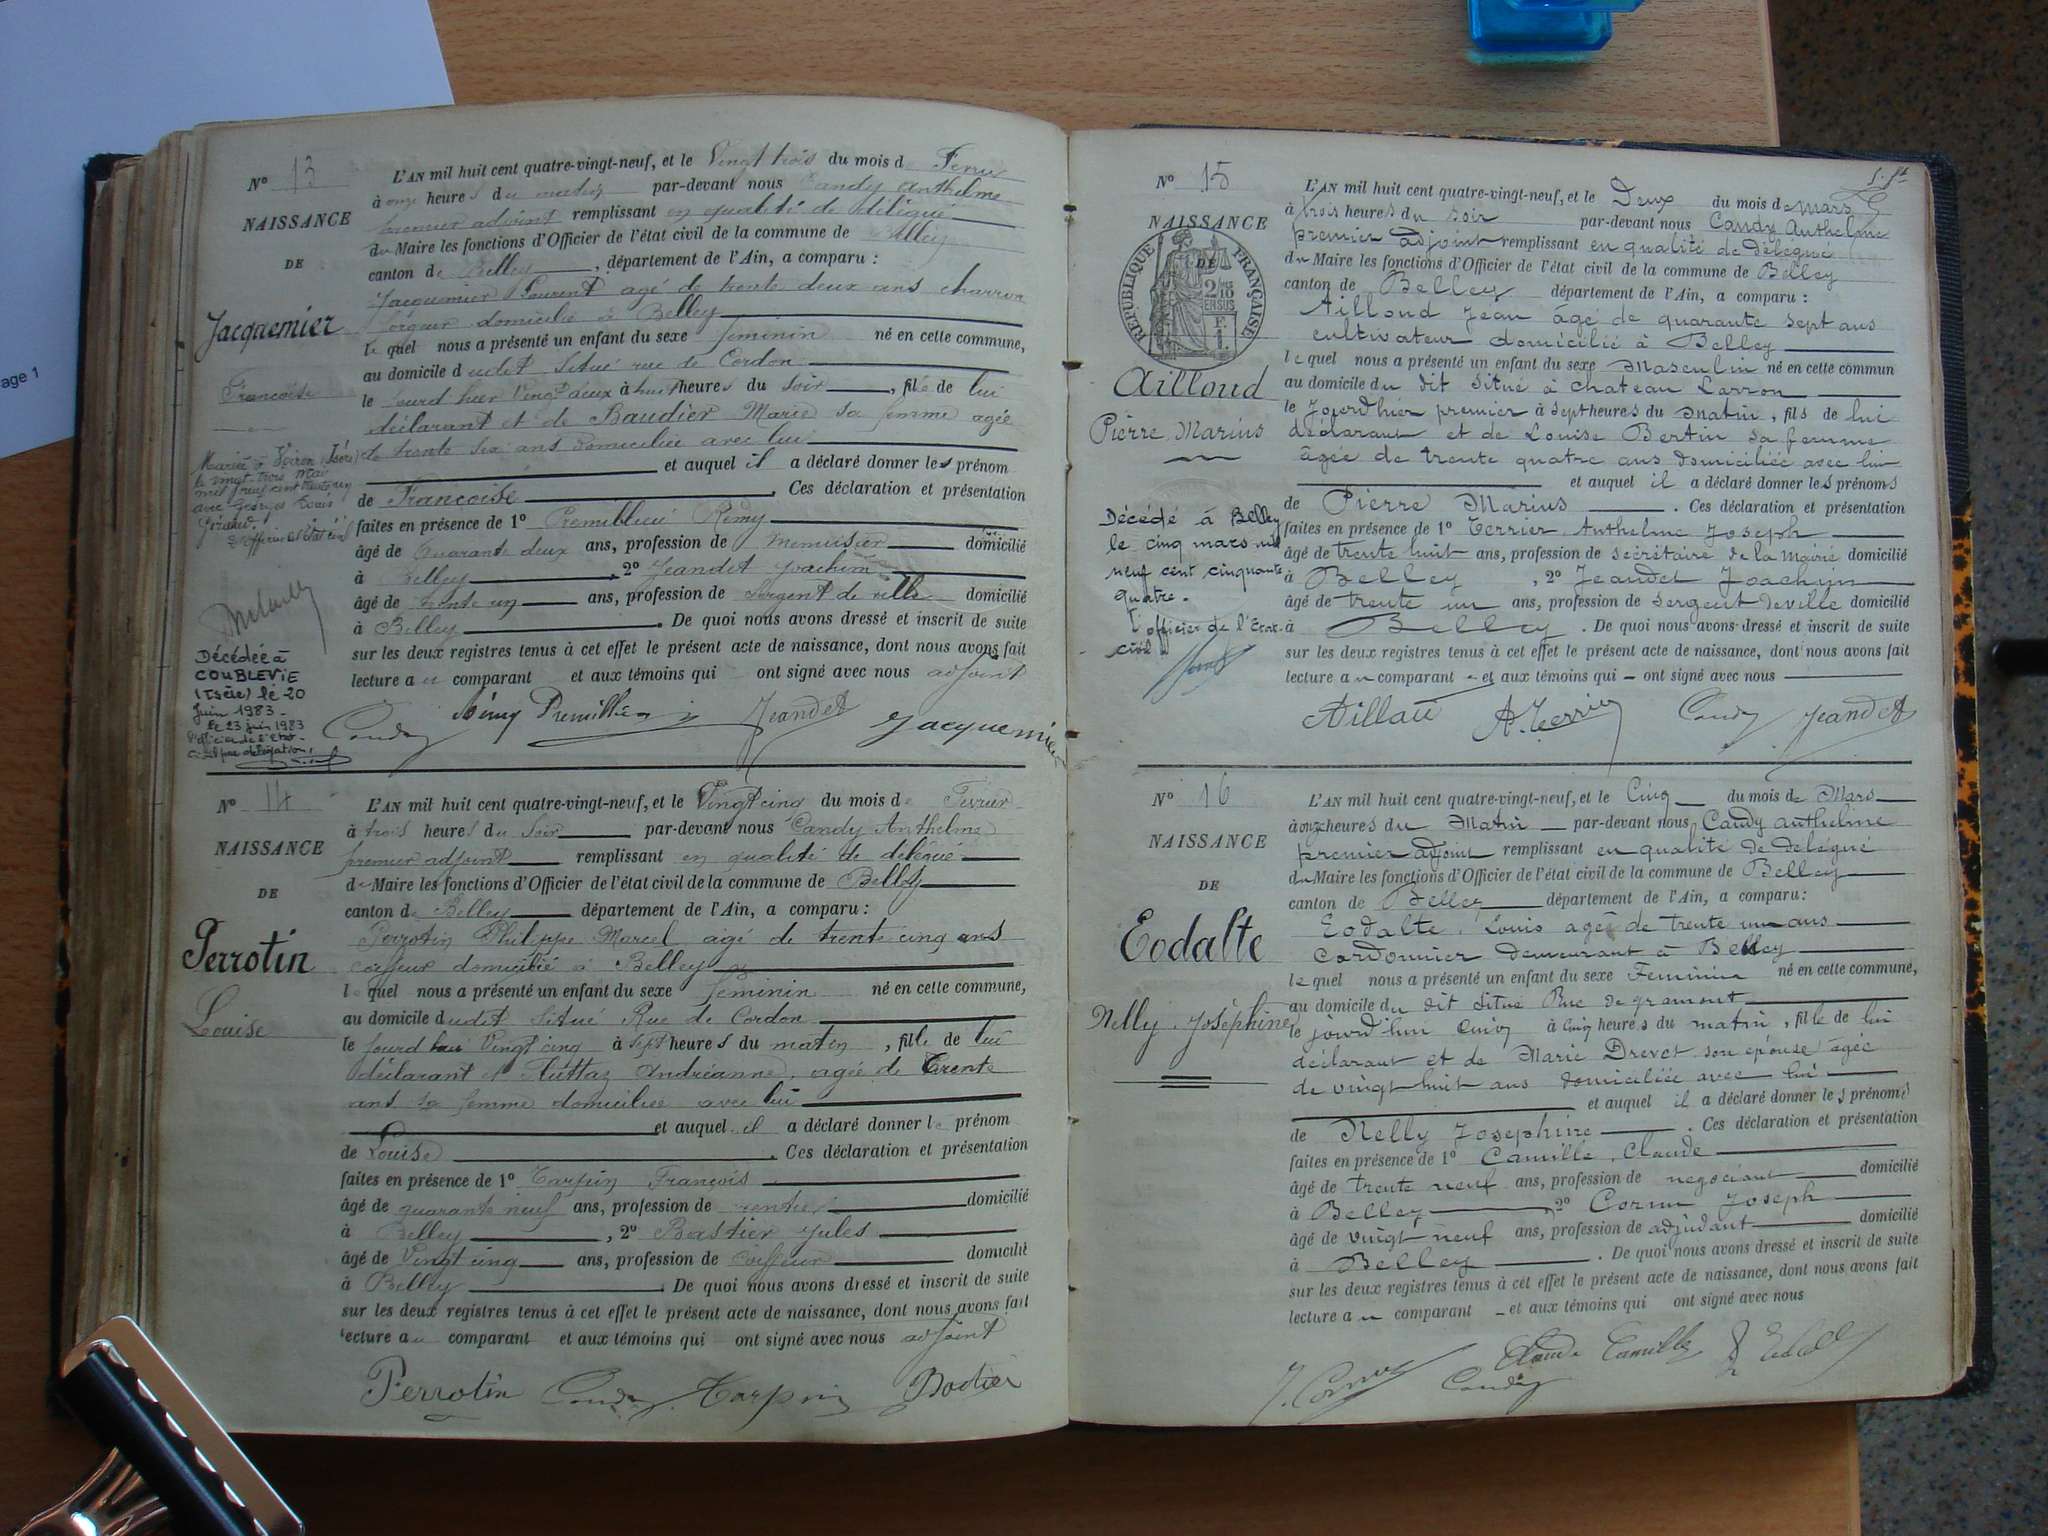 age 1
N° 13
NAISSANCE
DE
Jacquemier
Françoise
Mariée à Voiron (Isère)
le vingt-trois Mai
mil neuf cent
avec Georges Louis
Décédée à
COUBLEVIE
(Isère) le 20
Juin 1983 -
Le 23 juin 1983
l'officier de l'état-
civil par délégation,
L'AN mil huit cent quatre-vingt-neuf, et le Vingt trois du mois d
à onze heures du matin par-devant nous Candy Anthelme
premier adjoint remplissant en qualité de délégué
du Maire les fonctions d'Officier de l'état civil de la commune de Belley
canton de Belley, département de l'Ain, a comparu :
Jacquemier Laurent agé de trente deux ans charron
forgeur domicilié à Belley
lequel nous a présenté un enfant du sexe féminin né en cette commune,
au domicile dudit situé rue de Cordon
le jourd'hier Vingt deux à huit heures du soir, fille de lui
déclarant et de Baudier Marie sa femme agée
de trente six ans domiciliée avec lui
et auquel il a déclaré donner les prénom
de Françoise. Ces déclaration et présentation
faites en présence de 1° Premillieu Rémy
âgé de quarante deux ans, profession de menuisier domicilié
à Belley, 2° Jeandet Joachim
âgé de trente un ans, profession de sergent de ville domicilié
à Belley. De quoi nous avons dressé et inscrit de suite
sur les deux registres tenus à cet effet le présent acte de naissance, dont nous avons fait
lecture au comparant et aux témoins qui ont signé avec nous adjoint
Candy Rémy Premillieu Jeandet Jacquemier
N° 14
NAISSANCE
DE
Perrotin
Louise
L'AN mil huit cent quatre-vingt-neuf, et le Vingt cinq du mois de Février
à trois heures du Soir par-devant nous Candy Anthelme
premier adjoint remplissant en qualité de délégué
du Maire les fonctions d'Officier de l'état civil de la commune de Belley
canton de Belley département de l'Ain, a comparu :
Perrotin Philippe Marcel agé de trente cinq ans
coiffeur domicilié à Belley
lequel nous a présenté un enfant du sexe féminin né en cette commune,
au domicile dudit situé Rue de Cordon
le jourd'hui Vingt cinq à sept heures du matin, fille de lui
déclarant et Andréanne, agée de trente
ans sa femme domiciliée avec lui
et auquel il a déclaré donner le prénom
de Louise. Ces déclaration et présentation
faites en présence de 1° Tarpin François
âgé de quarante neuf ans, profession de rentier domicilié
à Belley, 2° Bastier Jules
âgé de Vingt cinq ans, profession de coiffeur domicilié
à Belley. De quoi nous avons dressé et inscrit de suite
sur les deux registres tenus à cet effet le présent acte de naissance, dont nous avons fait
lecture au comparant et aux témoins qui ont signé avec nous adjoint
Perrotin Candy Tarpin
N° 15
NAISSANCE
DE
RÉPUBLIQUE FRANÇAISE
Ailloud
Pierre Marius
Décédé à Belley
le cinq mars mil
neuf cent cinquante
quatre.
L'officier de l'Etat-
civil
L'AN mil huit cent quatre-vingt-neuf, et le Deux du mois de Mars
à trois heures du soir par-devant nous Candy Anthelme
premier adjoint remplissant en qualité de délégué
du Maire les fonctions d'Officier de l'état civil de la commune de Belley
canton de Belley département de l'Ain, a comparu :
Ailloud Jean âgé de quarante sept ans
cultivateur domicilié à Belley
lequel nous a présenté un enfant du sexe Masculin né en cette commun
au domicile du dit situé à chateau Larron
le Jourd'hier premier à sept heures du matin, fils de lui
déclarant et de Louise Bertin sa femme
âgée de trente quatre ans domiciliée avec lui
et auquel il a déclaré donner les prénoms
de Pierre Marius. Ces déclaration et présentation
faites en présence de 1° Terrier Anthelme Joseph
âgé de trente huit ans, profession de secrétaire de la Mairie domicilié
à Belley, 2° Jeandet Joachim
âgé de trente un ans, profession de sergent de ville domicilié
à Belley. De quoi nous avons dressé et inscrit de suite
sur les deux registres tenus à cet effet le présent acte de naissance, dont nous avons fait
lecture au comparant et aux témoins qui ont signé avec nous
Aillau A. Terrier Candy Jeandet
N° 16
NAISSANCE
DE
Eodalte
Nelly Joséphine
L'AN mil huit cent quatre-vingt-neuf, et le Cinq du mois de Mars
à onze heures du Matin par-devant nous Candy Anthelme
premier adjoint remplissant en qualité de délégué
du Maire les fonctions d'Officier de l'état civil de la commune de Belley
canton de Belley département de l'Ain, a comparu :
Eodalte Louis agé de trente un ans
Cordonnier demeurant à Belley
lequel nous a présenté un enfant du sexe Feminin né en cette commune,
au domicile du dit situé Rue de gramont
le jourd'hui cinq à cinq heures du matin, fille de lui
déclarant et de Marie Drevet son épouse âgée
de vingt huit ans domiciliée avec lui
et auquel il a déclaré donner les prénoms
de Nelly Josephine. Ces déclaration et présentation
faites en présence de 1° Camille Claude
âgé de trente neuf ans, profession de negociant domicilié
à Belley, 2° Cornu Joseph
âgé de vingt neuf ans, profession de adjudant domicilié
à Belley. De quoi nous avons dressé et inscrit de suite
sur les deux registres tenus à cet effet le présent acte de naissance, dont nous avons fait
lecture au comparant et aux témoins qui ont signé avec nous
J. Cornu Candy Claude Camille